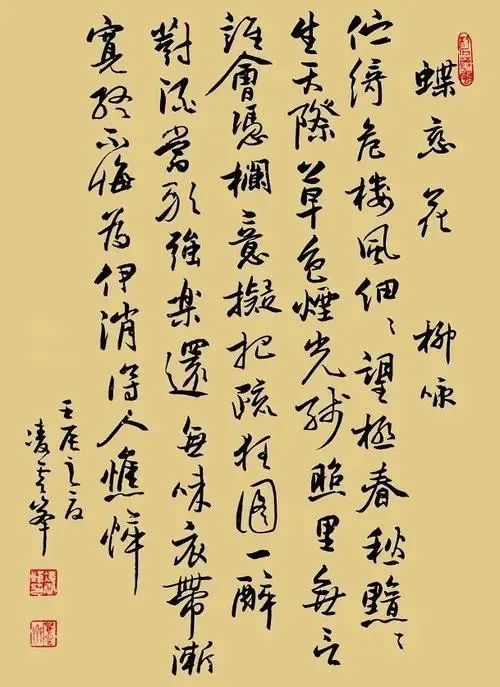 蝶恋花 柳咏
伫倚危楼風细〻望極春愁黯〻
生天際草色煙光残照里無言
誰會憑欄意擬把疏狂圖一醉
對酒當歌強楽還無味衣帶漸
寬終不悔為伊消得人憔悴
壬辰之夏
凌雲峰